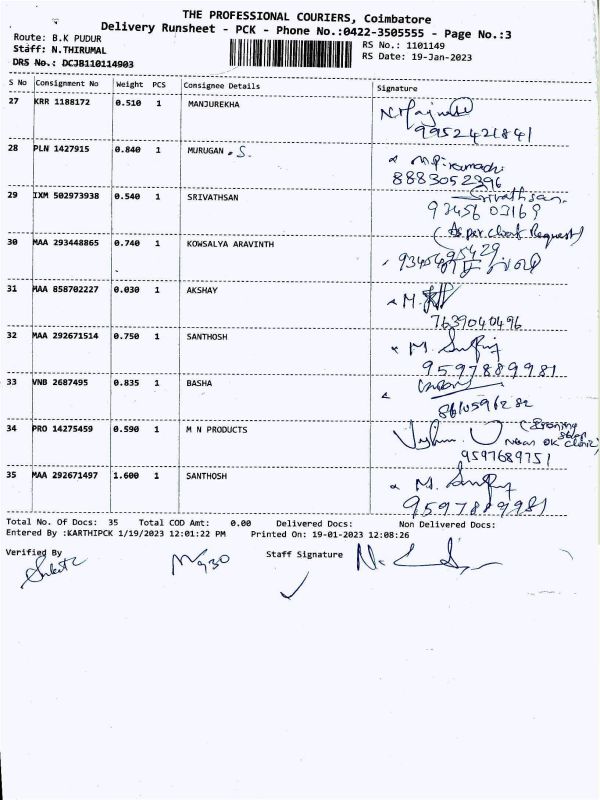 THE PROFESSIONAL COURIERS, Coimbatore
Delivery Runsheet - PCK - Phone No.:0422-3505555 - Page No.:3
Route: B.K PUDUR
RS No.: 1101149
Staff: N.THIRUMAL
RS Date: 19-Jan-2023
DRS No.: DCJB110114903
S No Consignment No Weight PCS Consignee Details Signature
27 KRR 1188172 0.510 1 MANJUREKHA
9952421841
28 PLN 1427915 0.840 1 MURUGAN . S.
8883052396
29 IXM 502973938 0.540 1 SRIVATHSAN Srivathsan.
93456 03169
(As per client Request)
30 MAA 293448865 0.740 1 KOWSALYA ARAVINTH
31 MAA 858702227 0.030 1 AKSHAY
7639040496
32 MAA 292671514 0.750 1 SANTHOSH
9597889981
33 VNB 2687495 0.835 1 BASHA
8610596282
34 PRO 14275459 0.590 1 M N PRODUCTS
Near OK Clinic)
9597689751
35 MAA 292671497 1.600 1 SANTHOSH
9597889981
Total No. Of Docs: 35 Total COD Amt: 0.00 Delivered Docs: Non Delivered Docs:
Entered By :KARTHIPCK 1/19/2023 12:01:22 PM Printed On: 19-01-2023 12:08:26
Verified By Staff Signature